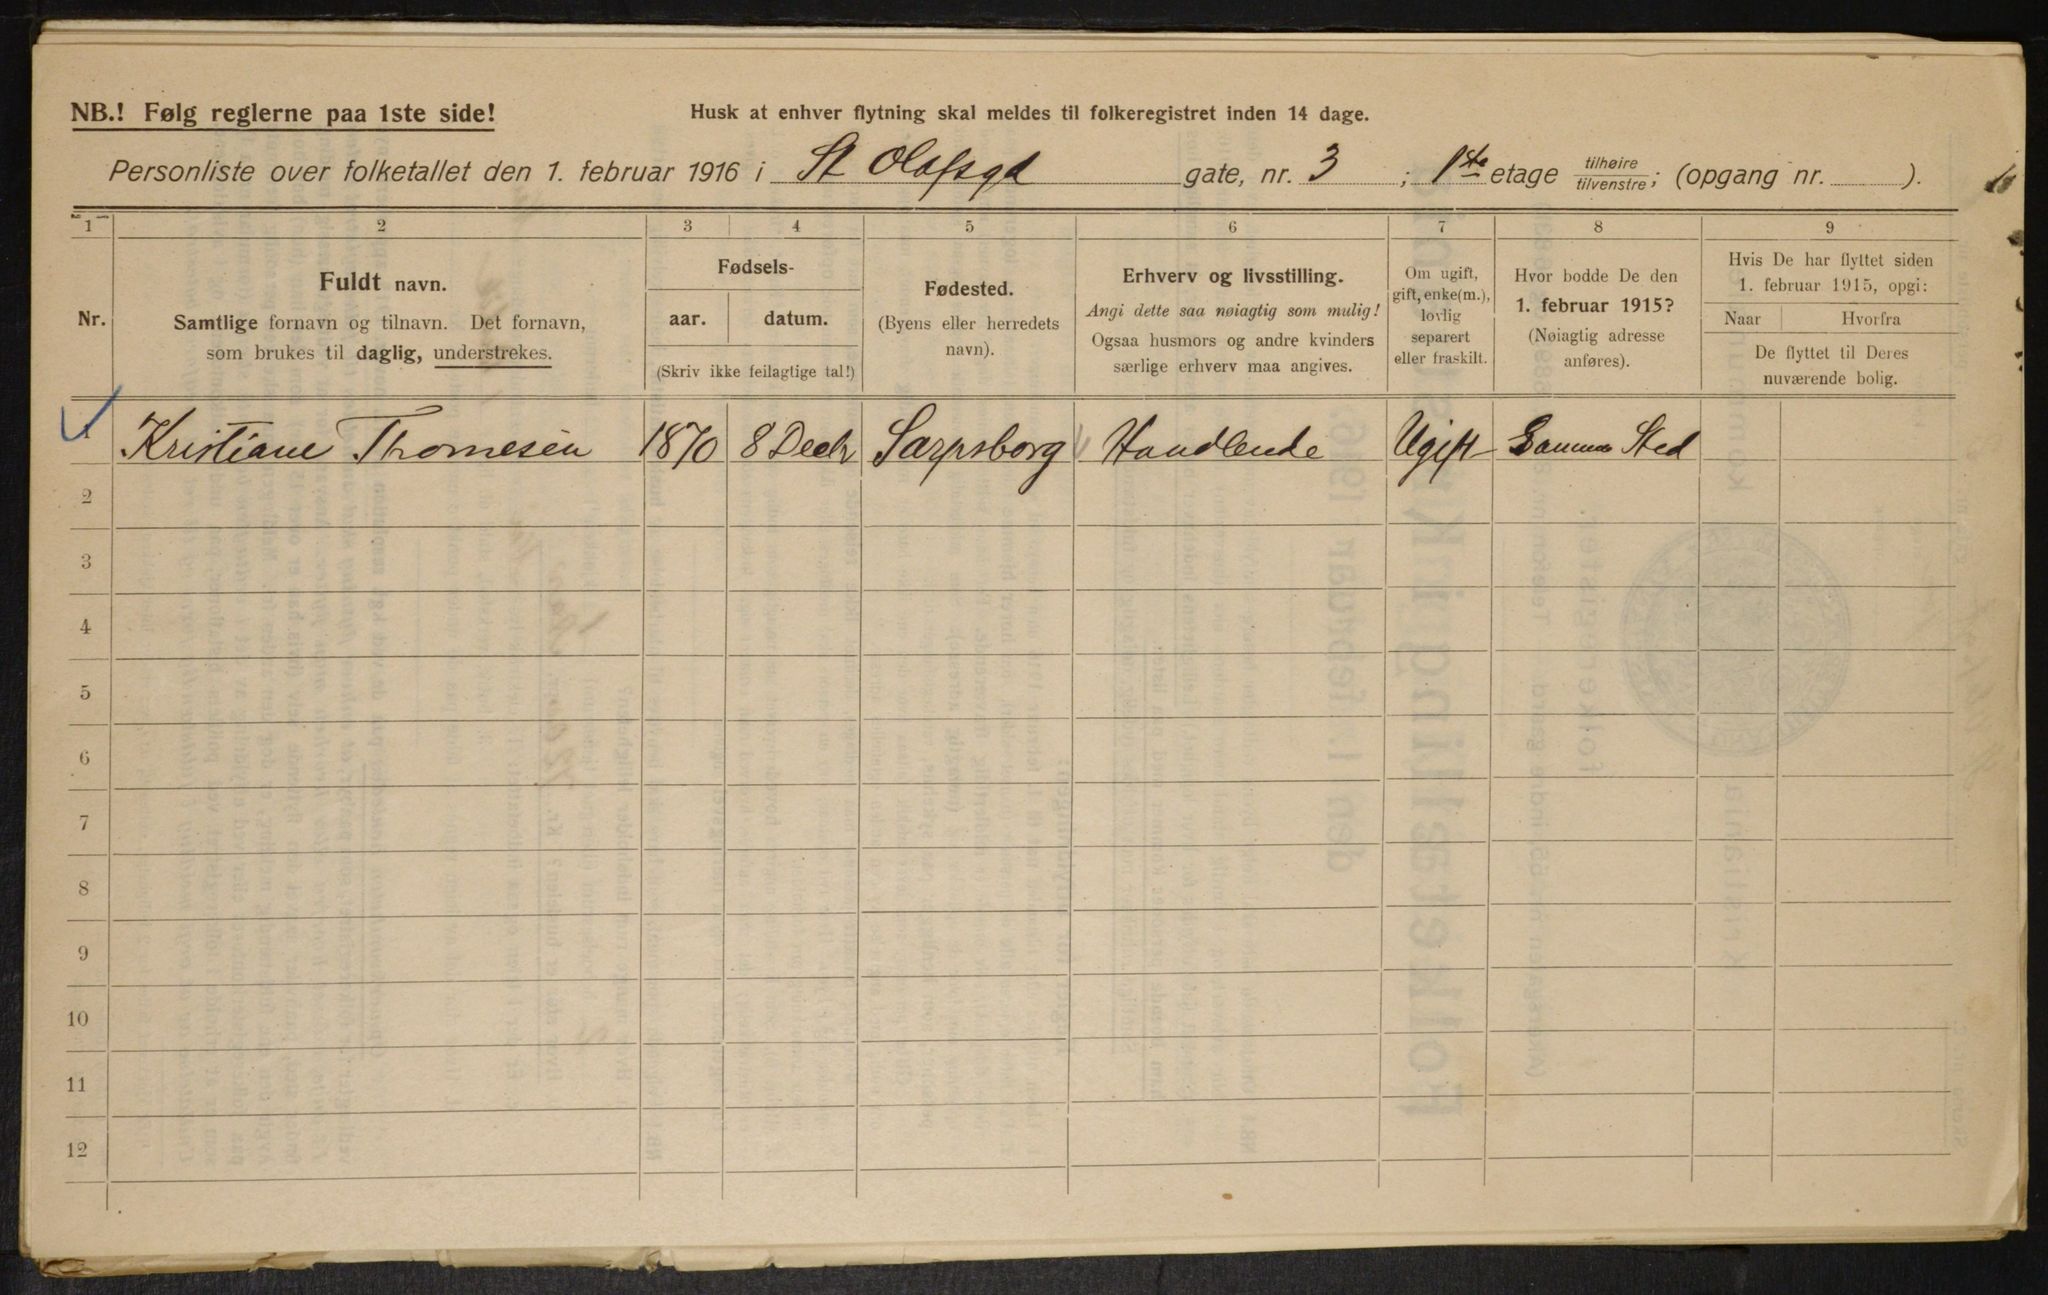 NB.! Følg reglerne paa 1ste side!
Husk at enhver flytning skal meldes til folkeregistret inden 14 dage.
Personliste over folketallet den 1. februar 1916 i St Olafsgd gate, nr. 3; 1ste etage tilhøire tilvenstre; (opgang nr. ).
1 2 3 4 5 6 7 8 9
Nr.
Fuldt navn.
Samtlige fornavn og tilnavn. Det fornavn,
som brukes til daglig, understrekes.
Fødsels-
aar. datum.
(Skriv ikke feilagtige tal!)
Fødested.
(Byens eller herredets
navn).
Erhverv og livsstilling.
Angi dette saa nøiagtig som mulig!
Ogsaa husmors og andre kvinders
særlige erhverv maa angives.
Om ugift,
gift, enke(m.),
lovlig
separert
eller fraskilt.
Hvor bodde De den
1. februar 1915?
(Nøiagtig adresse
anføres).
Hvis De har flyttet siden
1. februar 1915, opgi:
Naar Hvorfra
De flyttet til Deres
nuværende bolig.
1 Kristiane Thomesen 1870 8 Decbr Sarpsborg Handlende Ugift Samme Sted
2
3
4
5
6
7
8
9
10
11
12